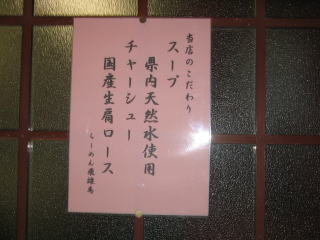 当店のこだわり
スープ
県内天然水使用
チャーシュー
国産生肩ロース
らーめん飛雄馬